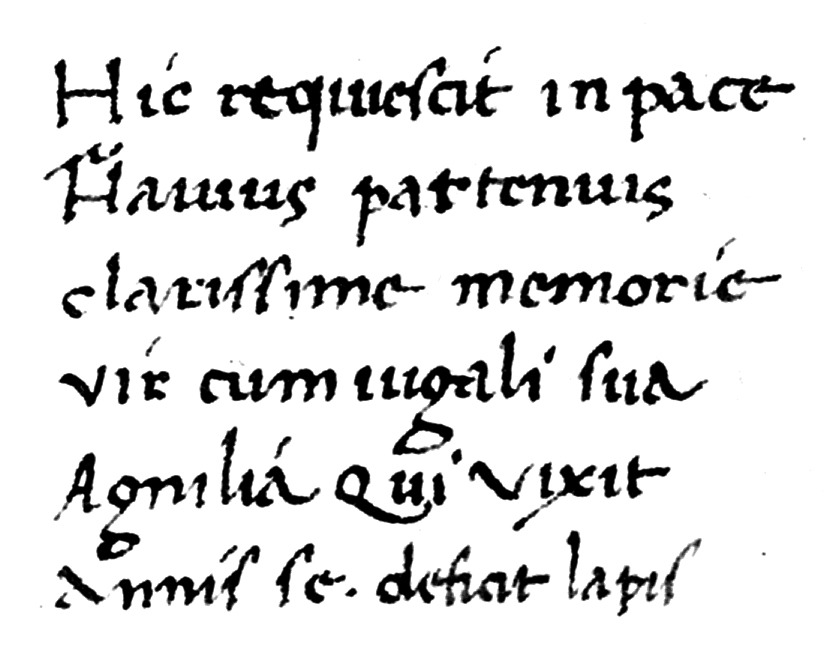 Hic requiescit in pace
Hauius partenuis
clarissime memorie
vir cum iugali sua
Agnilia Qui vixit
Annis se. deficit lapis